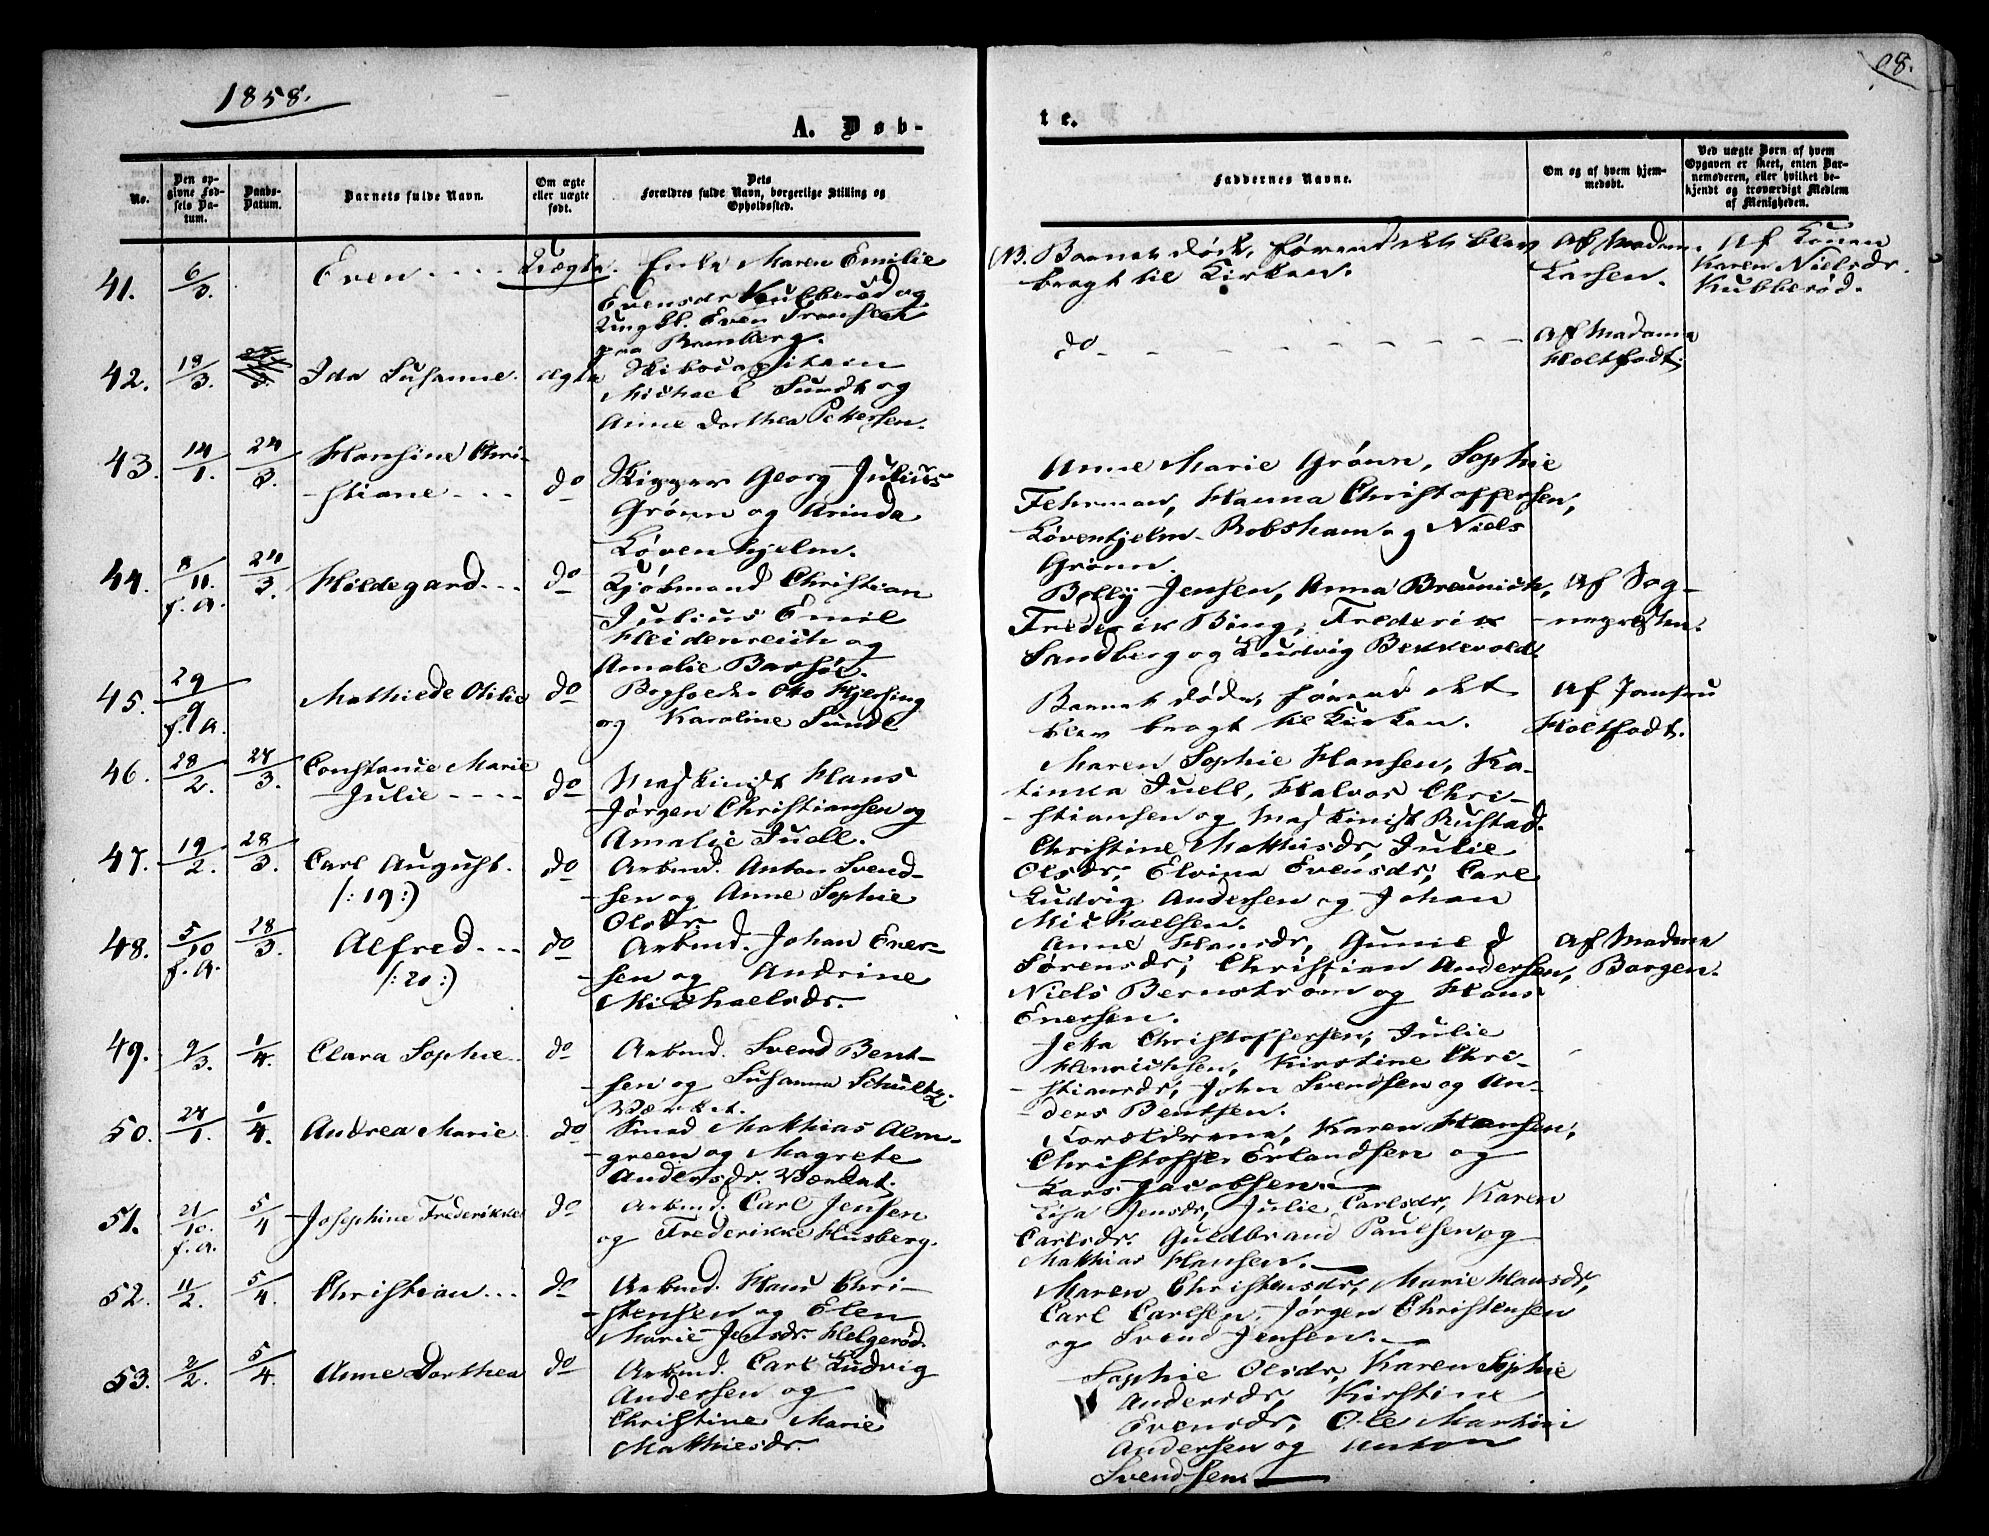 1858.
98.
A. Døb-
te.
No.
Den opgivne Fødsels Datum.
Daabs-Datum.
Barnets fulde Navn.
Om ægte eller uægte født.
Dets Forældres fulde Navn, borgerlige Stilling og Opholdssted.
Faddernes Navne.
Om og af hvem hjemmedøbt.
Ved uægte Børn af hvem Opgaven er skeet, enten Barnemoderen, eller hvilket bekjendt og troværdigt Medlem af Menigheden.
41. 6/3. Even Uægte. Enke Maren Emilie
Evensdr Kubberød og
Ungkl. Even Fransen
fra Bamberg.
NB. Barnet døde, førend det blev
bragt til Kirken.
Af Madam
Larsen.
Af Konen
Karen Nielsdr.
Kubberød.
42. 18/3. Ida Susanne. ægte Skibscapitain
Michael Sundt og
Anne Dorthea Petersen.
do
Af Madame
Holtfodt.
43. 14/1. 24/3. Hansine Chri-
stiane do Rigger Georg Julius
Grønn og Arinda
Løvenhjelm.
Anne Marie Grønn, Sophie
Fehrman, Hanna Christoffersen,
Løvenhjelm Robsham og Niels
Grønn.
44. 8/11. f. A. 24/3. Hildegard do Kjøbmand Christian
Julius Emil
Heidenreich og
Amalie Barhoe.
Bolly Jensen, Anna Breunich,
Frederik Bing, Frederik
Sandberg og Ludvig Bekkevold.
Af Sog-
nepresten.
45. 29/9 f. A. Mathilde Otilie do Bogholder Otto Hjersing
og Karoline Sundt
Barnet døde, førend det
blev bragt til Kirken.
Af Jomfru
Holtfodt.
46. 28/2. 27/3. Constanse Marie
Julie do Maskinist Hans
Jørgen Christiansen og
Amalie Juell.
Maren Sophie Hansen, Ka-
tinka Juell, Halvor Chri-
stiansen og Maskinist Rustad.
47. 19/2. 28/3. Carl August.
/: 19 :/ do Arbmd. Anton Svend-
sen og Anne Sophie
Olsdr
Christine Mathisdr, Julie
Olsdr, Elvina Evensdr, Carl
Ludvig Andersen og Johan
Michaelsen.
48. 5/10 f. A. 28/3. Alfred
/: 20 :/ do Arbmd. Johan Ener-
sen og Andrine
Michaelsdr.
Anne Hansdr, Gunild
Sørensdr, Christian Andersen,
Niels Bernstrøm og Hans
Enersen.
Af Madme
Borgen.
49. 9/3. 1/4. Clara Sophie do Arbmd. Svend Bent-
sen og Susanna Schultz.
Værket.
Jetta Christoffersen, Julie
Henrichsen, Kirstine Chri-
stiansdr, John Svendsen og An-
ders Bentsen.
50. 27/1. 1/4. Andrea Marie do Smed Mathias Alm-
green og Magrete
Andersdr. Værket.
Forældrene, Karen Hansen,
Christoffer Erlandsen og
Lars Jacobsen.
51. 21/10. f. A. 5/4 Josephine Frederikke do Arbmd. Carl Jensen
og Frederikke Husberg.
Lisa Jensdr, Julie Carlsdr, Karen
Carlsdr. Guldbrand Paulsen og
Mathias Hansen.
52. 11/2. 5/4. Christian do Arbmd. Hans Chri-
stensen og Elen
Marie Jensdr. Helgerød.
Maren Christensdr, Marie Hansdr,
Carl Carlsen, Jørgen Christensen
og Svend Jensen.
53. 2/2. 5/4. Anne Dorthea do Arbmd. Carl Ludvig
Andersen og
Christine Marie
Mathisdr.
Sophie Olsdr, Karen Sophie
Andersdr, Kirstine
Evensdr, Ole Martin
Andersen og Anton
Svendsen